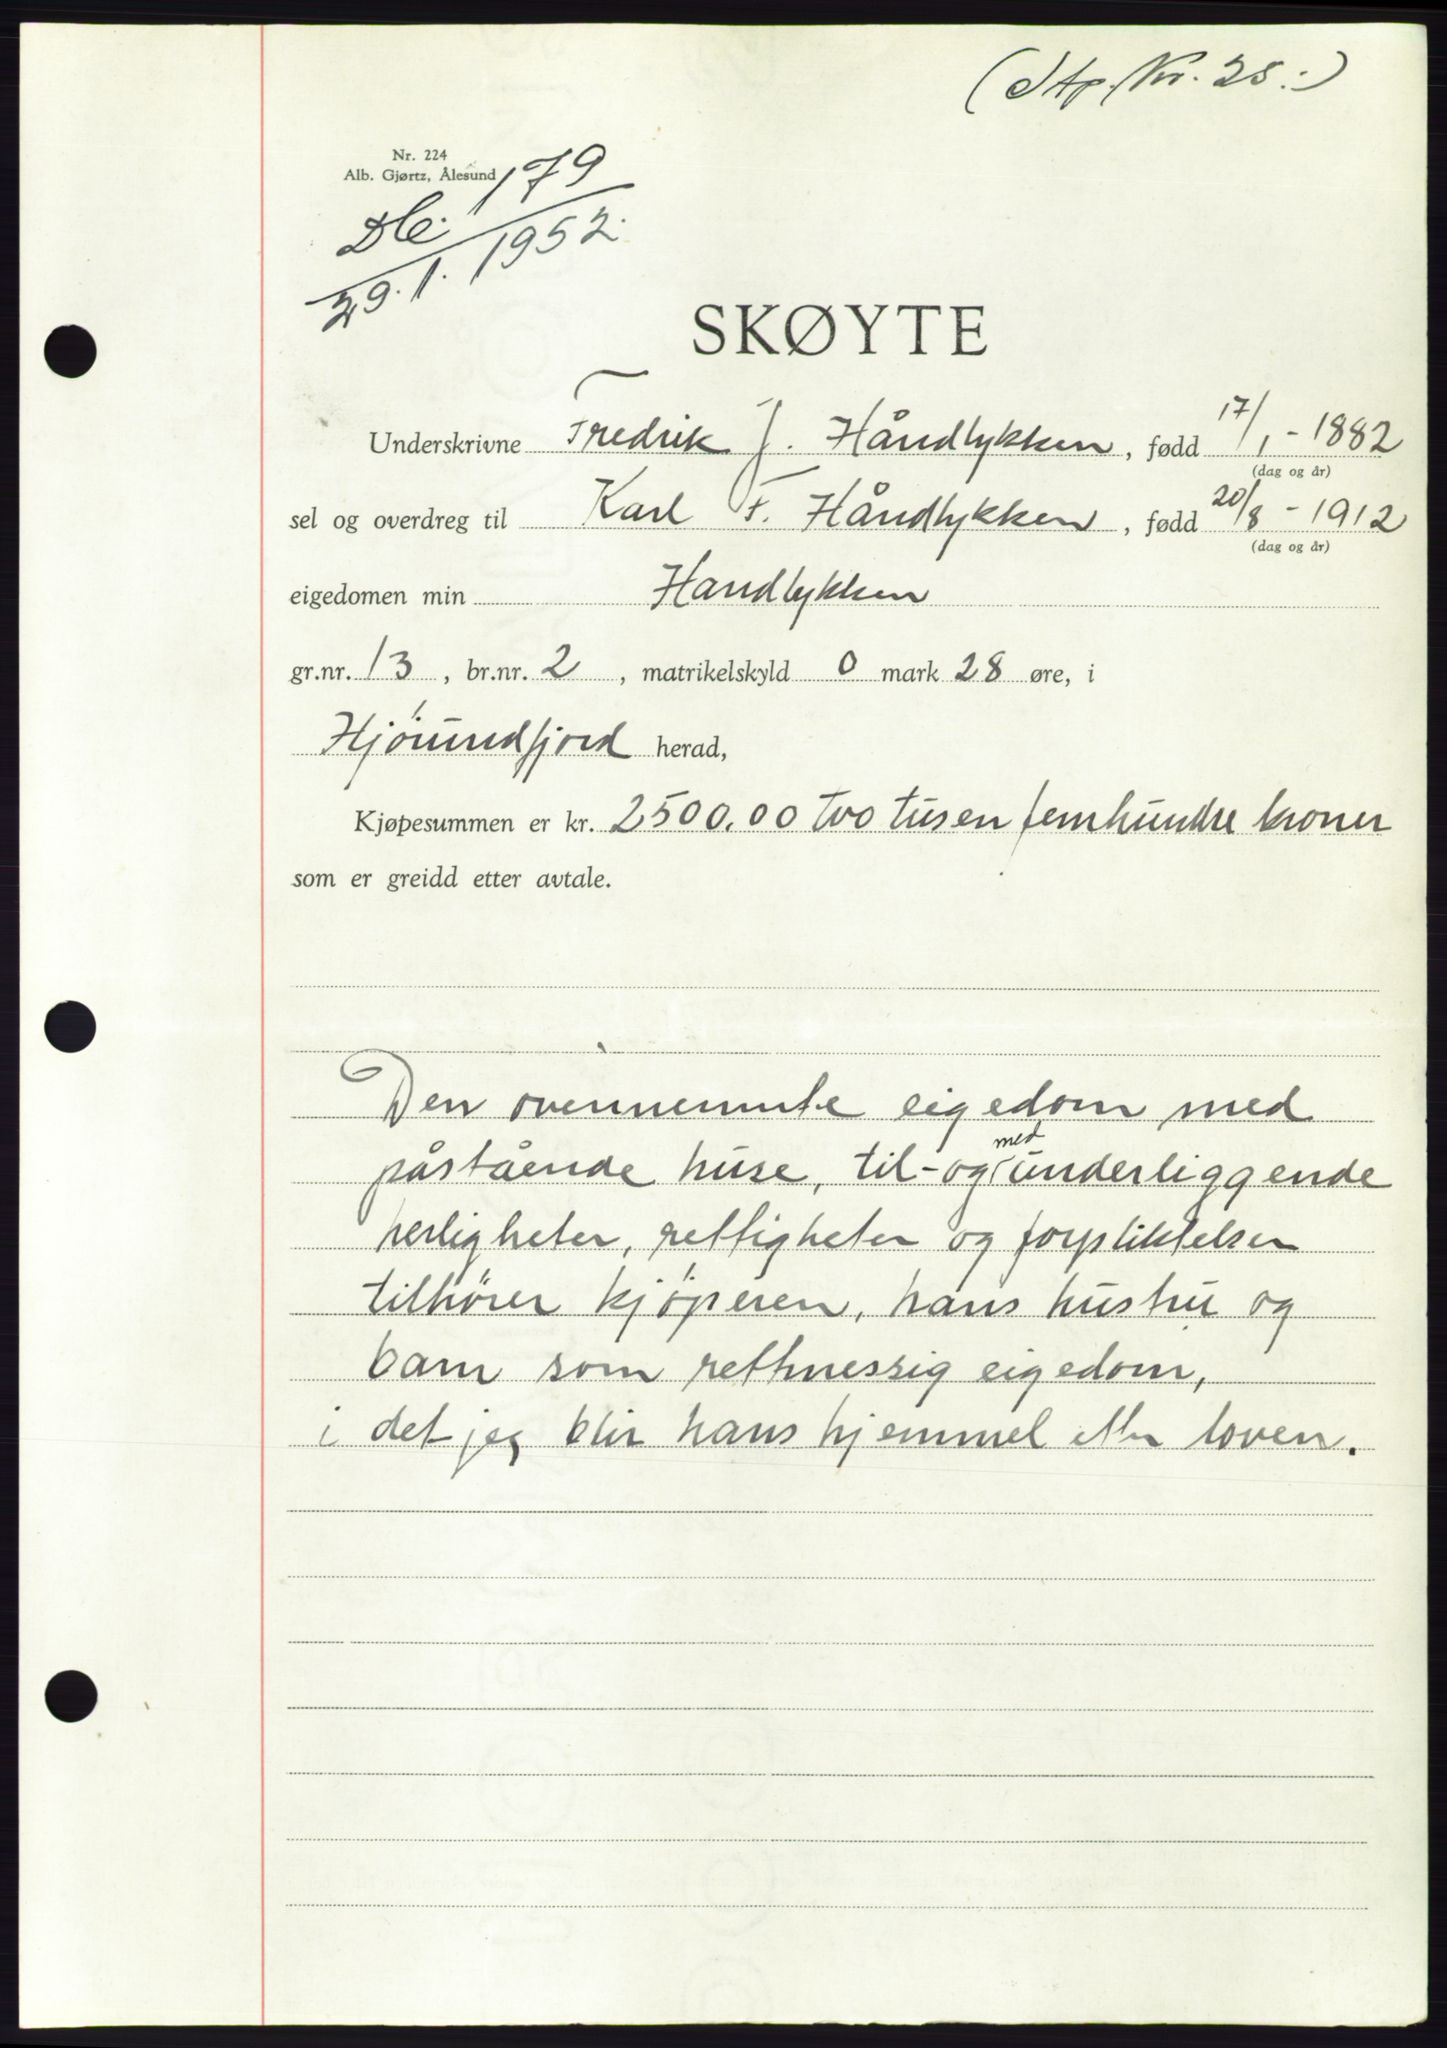 (Stp. Kr. 25.-)
Nr. 224
Alb. Gjørtz, Ålesund
Db. 179
29.1.1952.
SKØYTE
Underskrivne Fredrik J. Håndlykken, fødd 17/1-1882
(dag og år)
sel og overdreg til Karl F. Håndlykken, fødd 20/8-1912
(dag og år)
eigedomen min Handlykken
gr.nr. 13, br.nr. 2, matrikelskyld 0 mark 28 øre, i
Hjørundfjord herad,
Kjøpesummen er kr. 2500.00 tvo tusen femhundre kroner
som er greidd etter avtale.
Den ovennemnte eigedom med
påstående huse, til- og med underliggende
herligheter, rettigheter og forpliktelser
tilhører kjøperen, hans hustru og
barn som rettmessig eigedom,
i det jeg blir hans hjemmel etter loven.